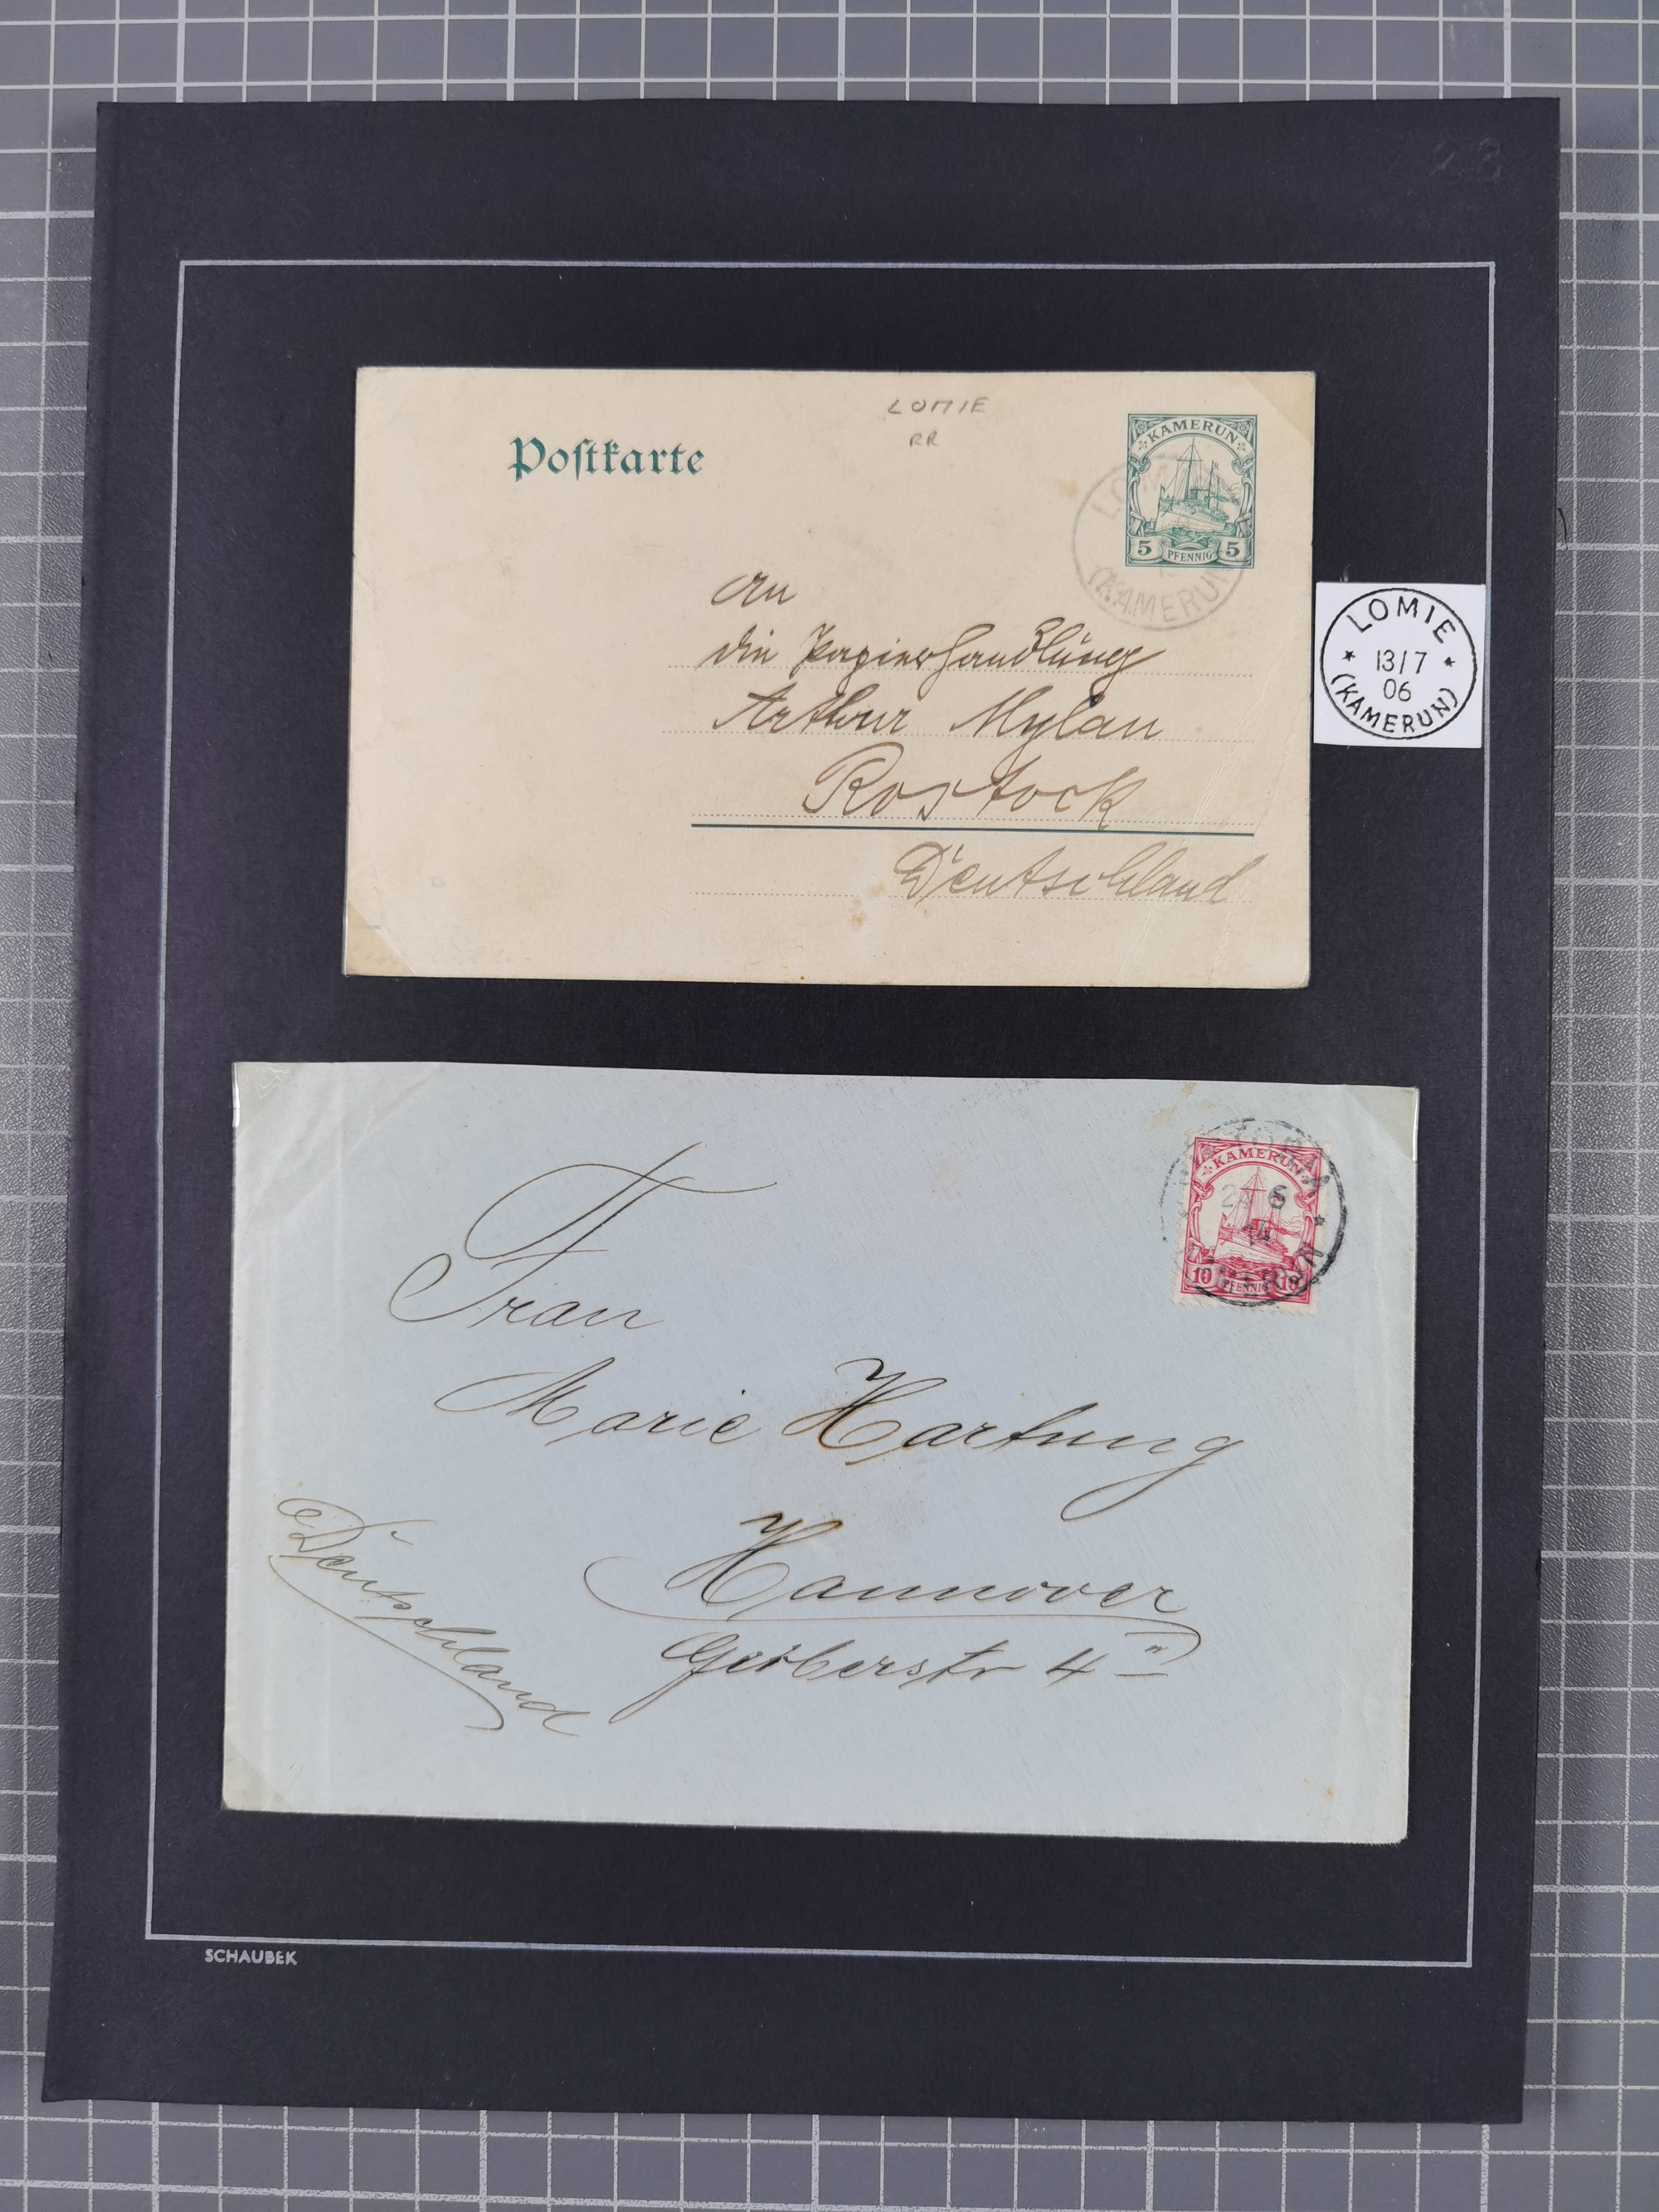 28
LOMIE
RR
Postkarte
KAMERUN
5 PFENNIG 5
LOMIE
(KAMERUN)
An
die Papierhandlung
Arthur Mylau
Rostock
Deutschland
LOMIE
* 13/7 *
06
(KAMERUN)
KAMERUN
10 PFENNIG 10
6
14
Frau
Marie Hartung
Hannover
Geibelstr 4 II
Deutschland
SCHAUBEK